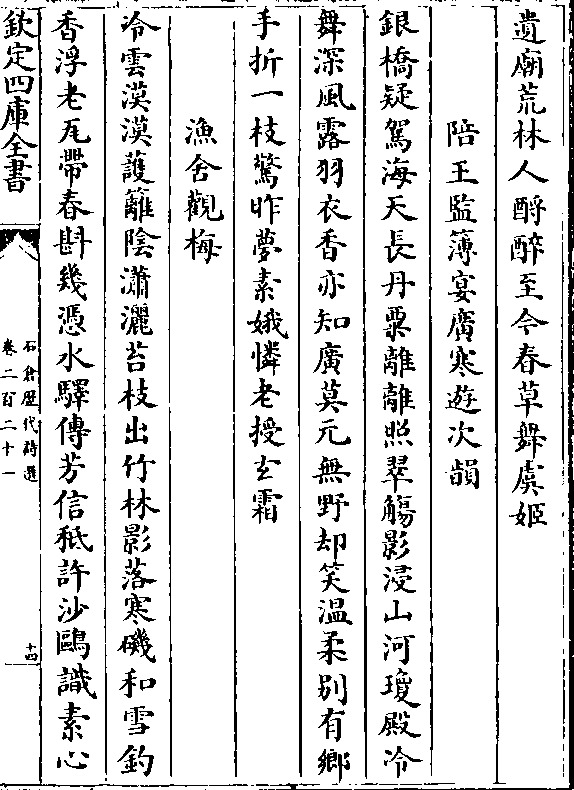 遺廟荒林人酹醉至今春草舞虞姬
陪王監簿宴廣寒遊次韻
銀橋疑駕海天長丹粟離離照翠觴影浸山河瓊殿冷
舞深風露羽衣香亦知廣莫元無野却笑溫柔別有鄉
手折一枝驚昨夢素娥憐老授玄霜
漁舍觀梅
冷雲漠漠護籬陰瀟灑苔枝出竹林影落寒磯和雪釣
香浮老瓦帶春斟幾憑水驛傳芳信秪許沙鷗識素心
欽定四庫全書
石倉歷代詩選
卷二百二十一
十四